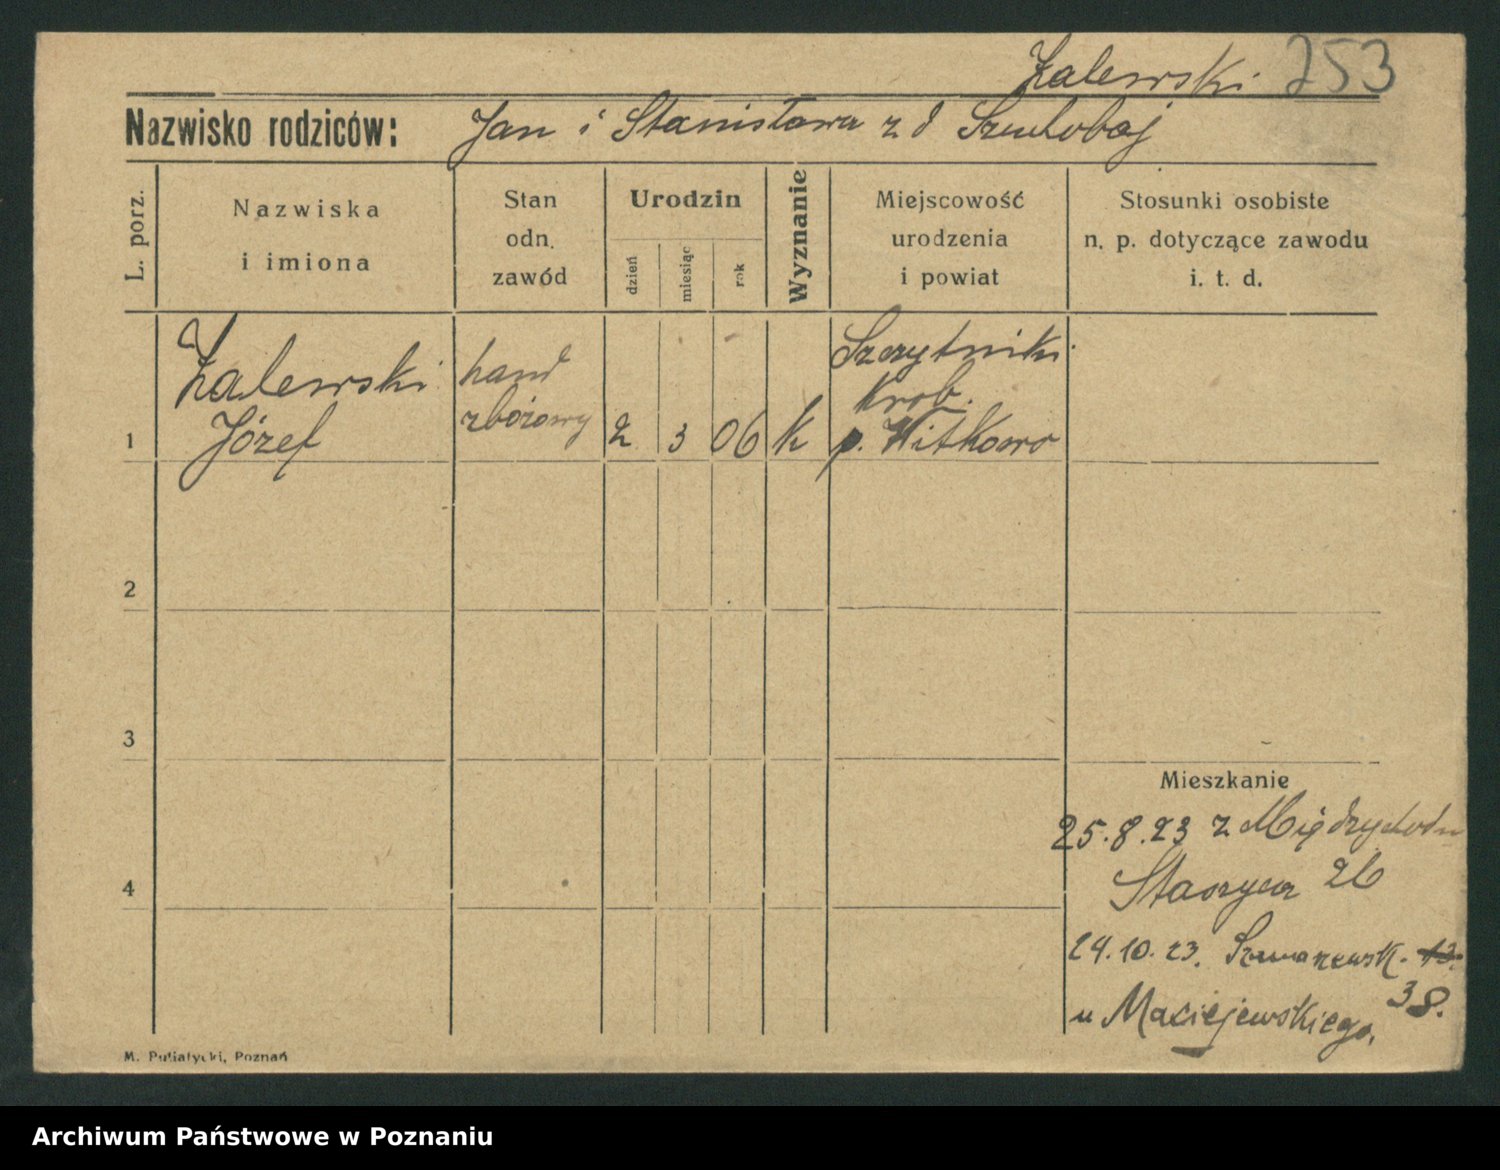 Zalewski 253
Nazwisko rodziców: Jan i Stanisława z d
L. porz.
Nazwiska
i imiona
Stan
odn.
zawód
Urodzin
dzień
miesiąc
rok
Wyznanie
Miejscowość
urodzenia
i powiat
Stosunki osobiste
n. p. dotyczące zawodu
i. t. d.
1
Zalewski
Józef
hand
zbożowy
2 3 06 k
Szczytniki
p. Witkowo
2
3
4
Mieszkanie
25.8.23 z Międzychodu
Staszyca 26
24.10.23.
38.
u Maciejewskiego.
M. Putiatycki, Poznań
Archiwum Państwowe w Poznaniu